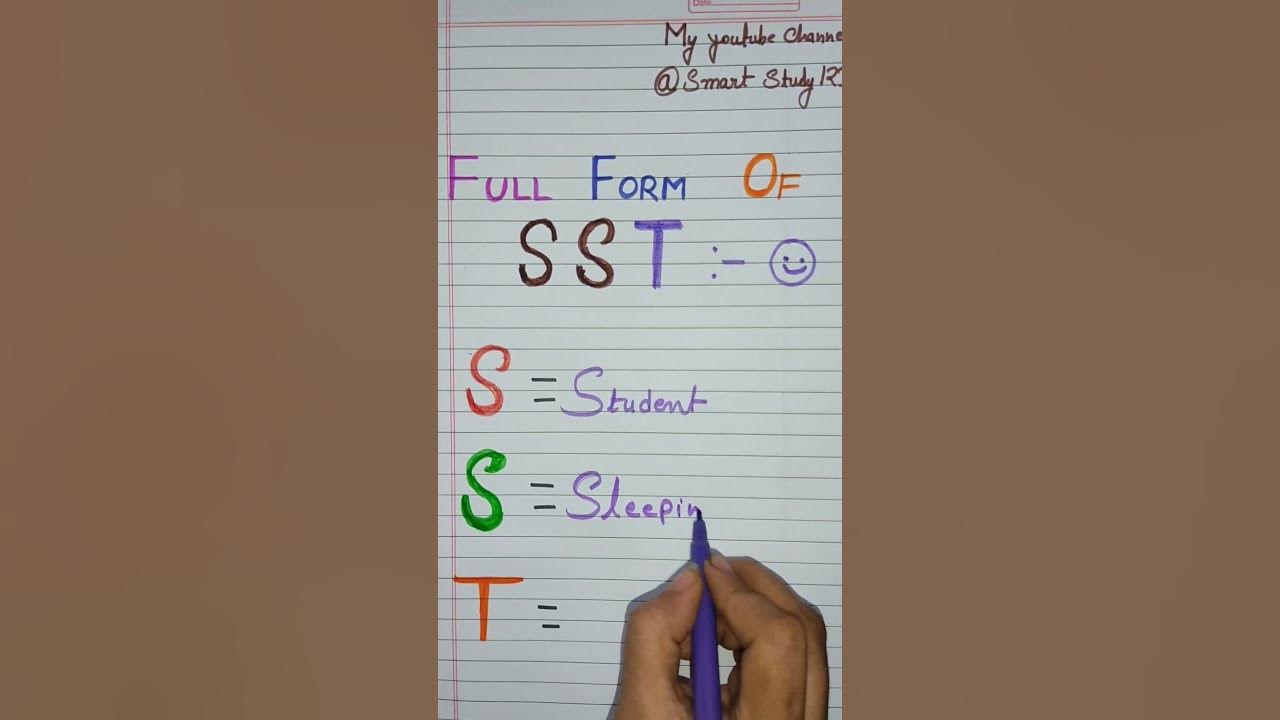 Date
My youtube Channe
@Smart Study 12
FULL FORM OF
SST :-
S = Student
S = Sleepin
T =